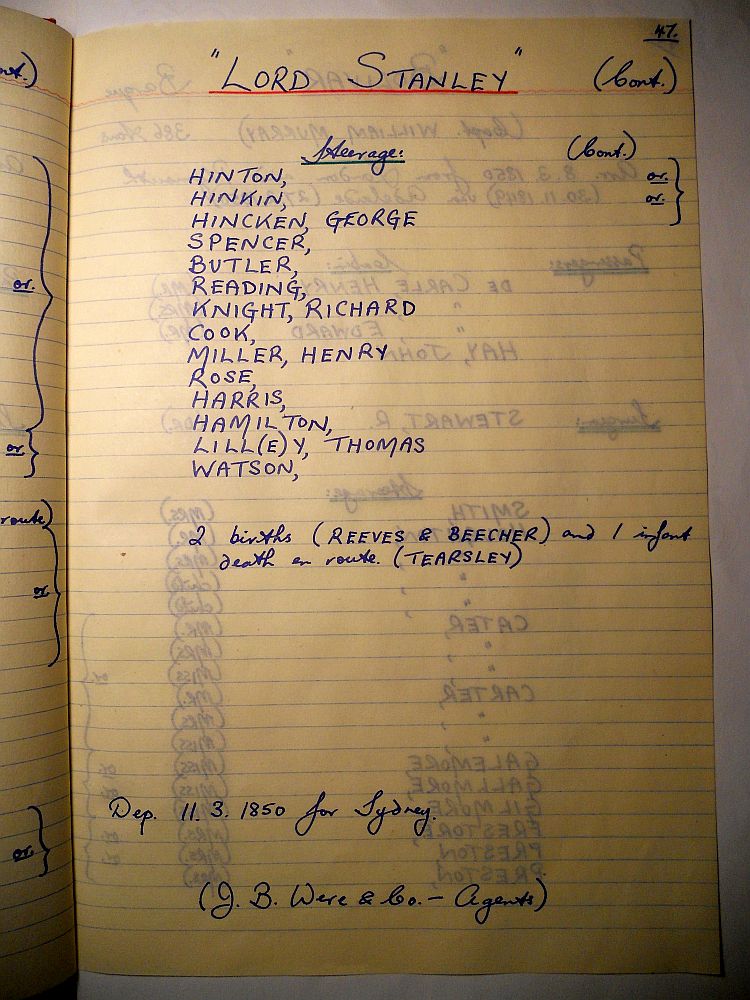 47.
"LORD STANLEY" (Cont.)
Steerage: (Cont.)
HINTON, or.
HINKIN, or.
HINCKEN, GEORGE
SPENCER,
BUTLER,
READING,
KNIGHT, RICHARD
COOK,
MILLER, HENRY
ROSE,
HARRIS,
HAMILTON,
LILL(E)Y, THOMAS
WATSON,
2 births (REEVES & BEECHER) and 1 infant
death en route. (TEARSLEY)
Dep. 11. 3. 1850 for Sydney.
(J. B. Were & Co. - Agents)
or.
or.
route)
or.
or.